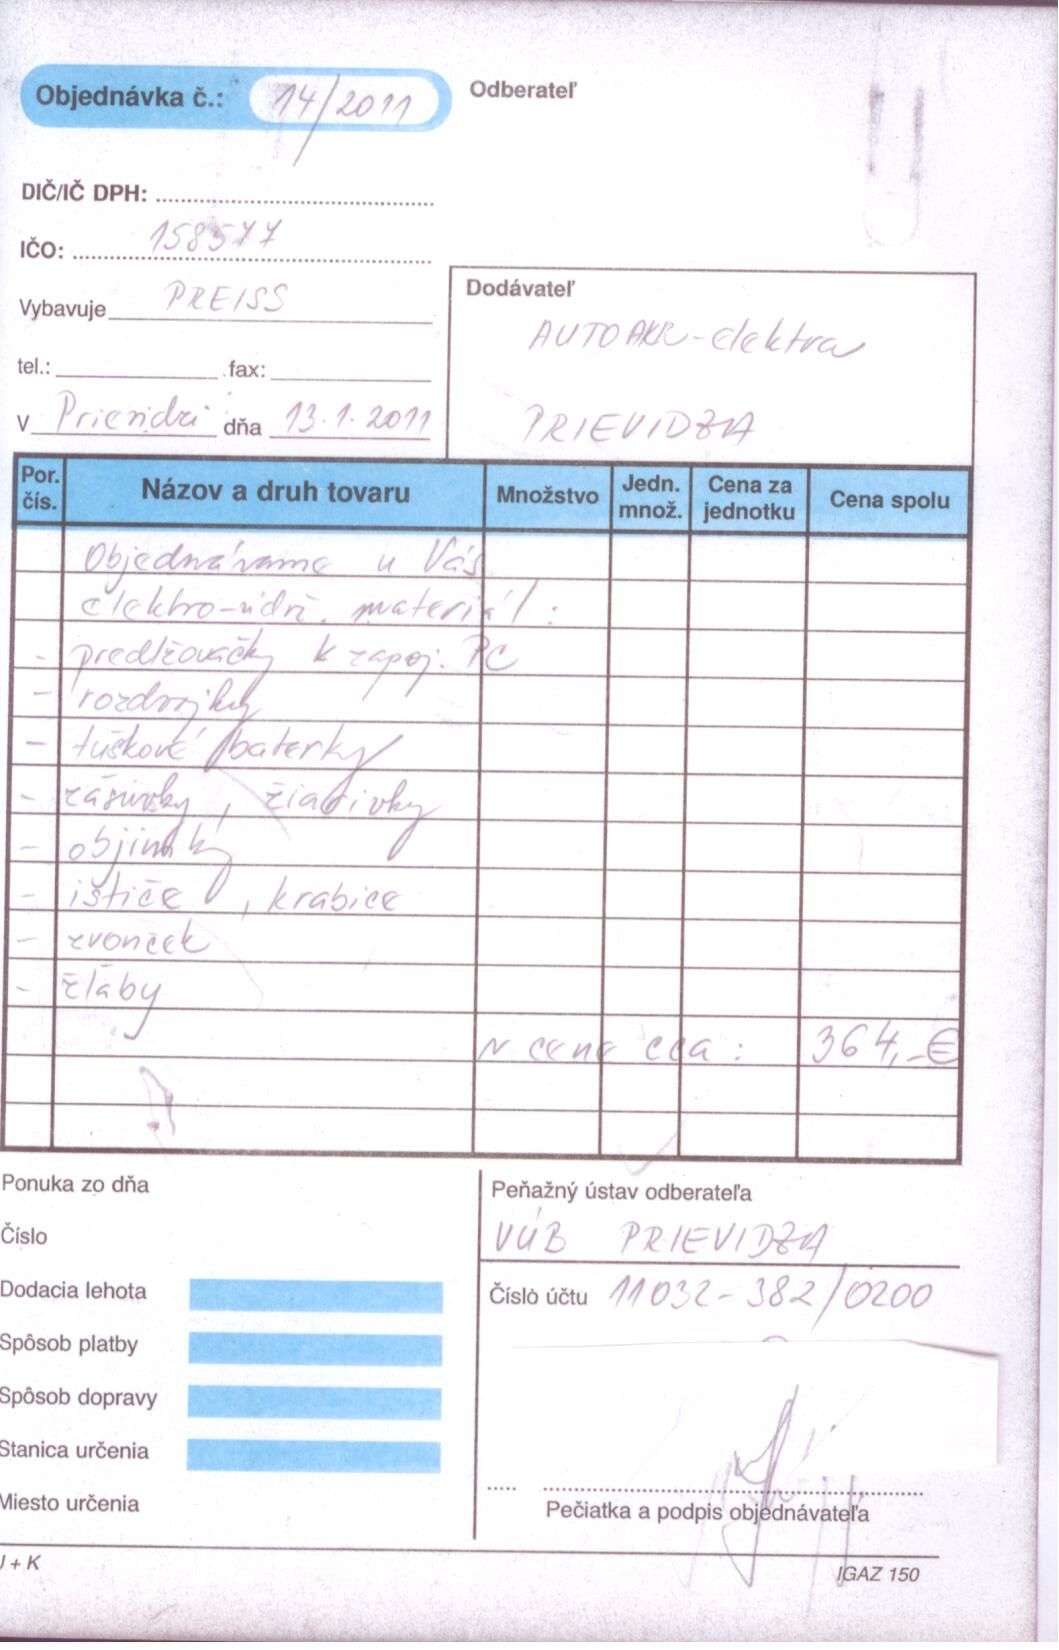 Objednávka č.: 14/2011
Odberateľ
DIČ/IČ DPH:
IČO: 158577
Vybavuje PREISS
tel.: fax:
V Prievidzi dňa 13.1.2011
Dodávateľ
AUTOAKR-elektra
PRIEVIDZA
Por. čís. Názov a druh tovaru Množstvo Jedn. množ. Cena za jednotku Cena spolu
Objednávame u Vás
elektro-údrž. materiál:
- predlžovačky k zapoj. PC
- rozdvojky
- tuškové baterky
- zásuvky, žiarivky
- objímky
- ističe, krabice
- zvonček
- žľaby
v cene cca: 364,-€
Ponuka zo dňa
Číslo
Dodacia lehota
Spôsob platby
Spôsob dopravy
Stanica určenia
Miesto určenia
Peňažný ústav odberateľa
VÚB PRIEVIDZA
Číslo účtu 11032-382/0200
Pečiatka a podpis objednávateľa
J + K
IGAZ 150